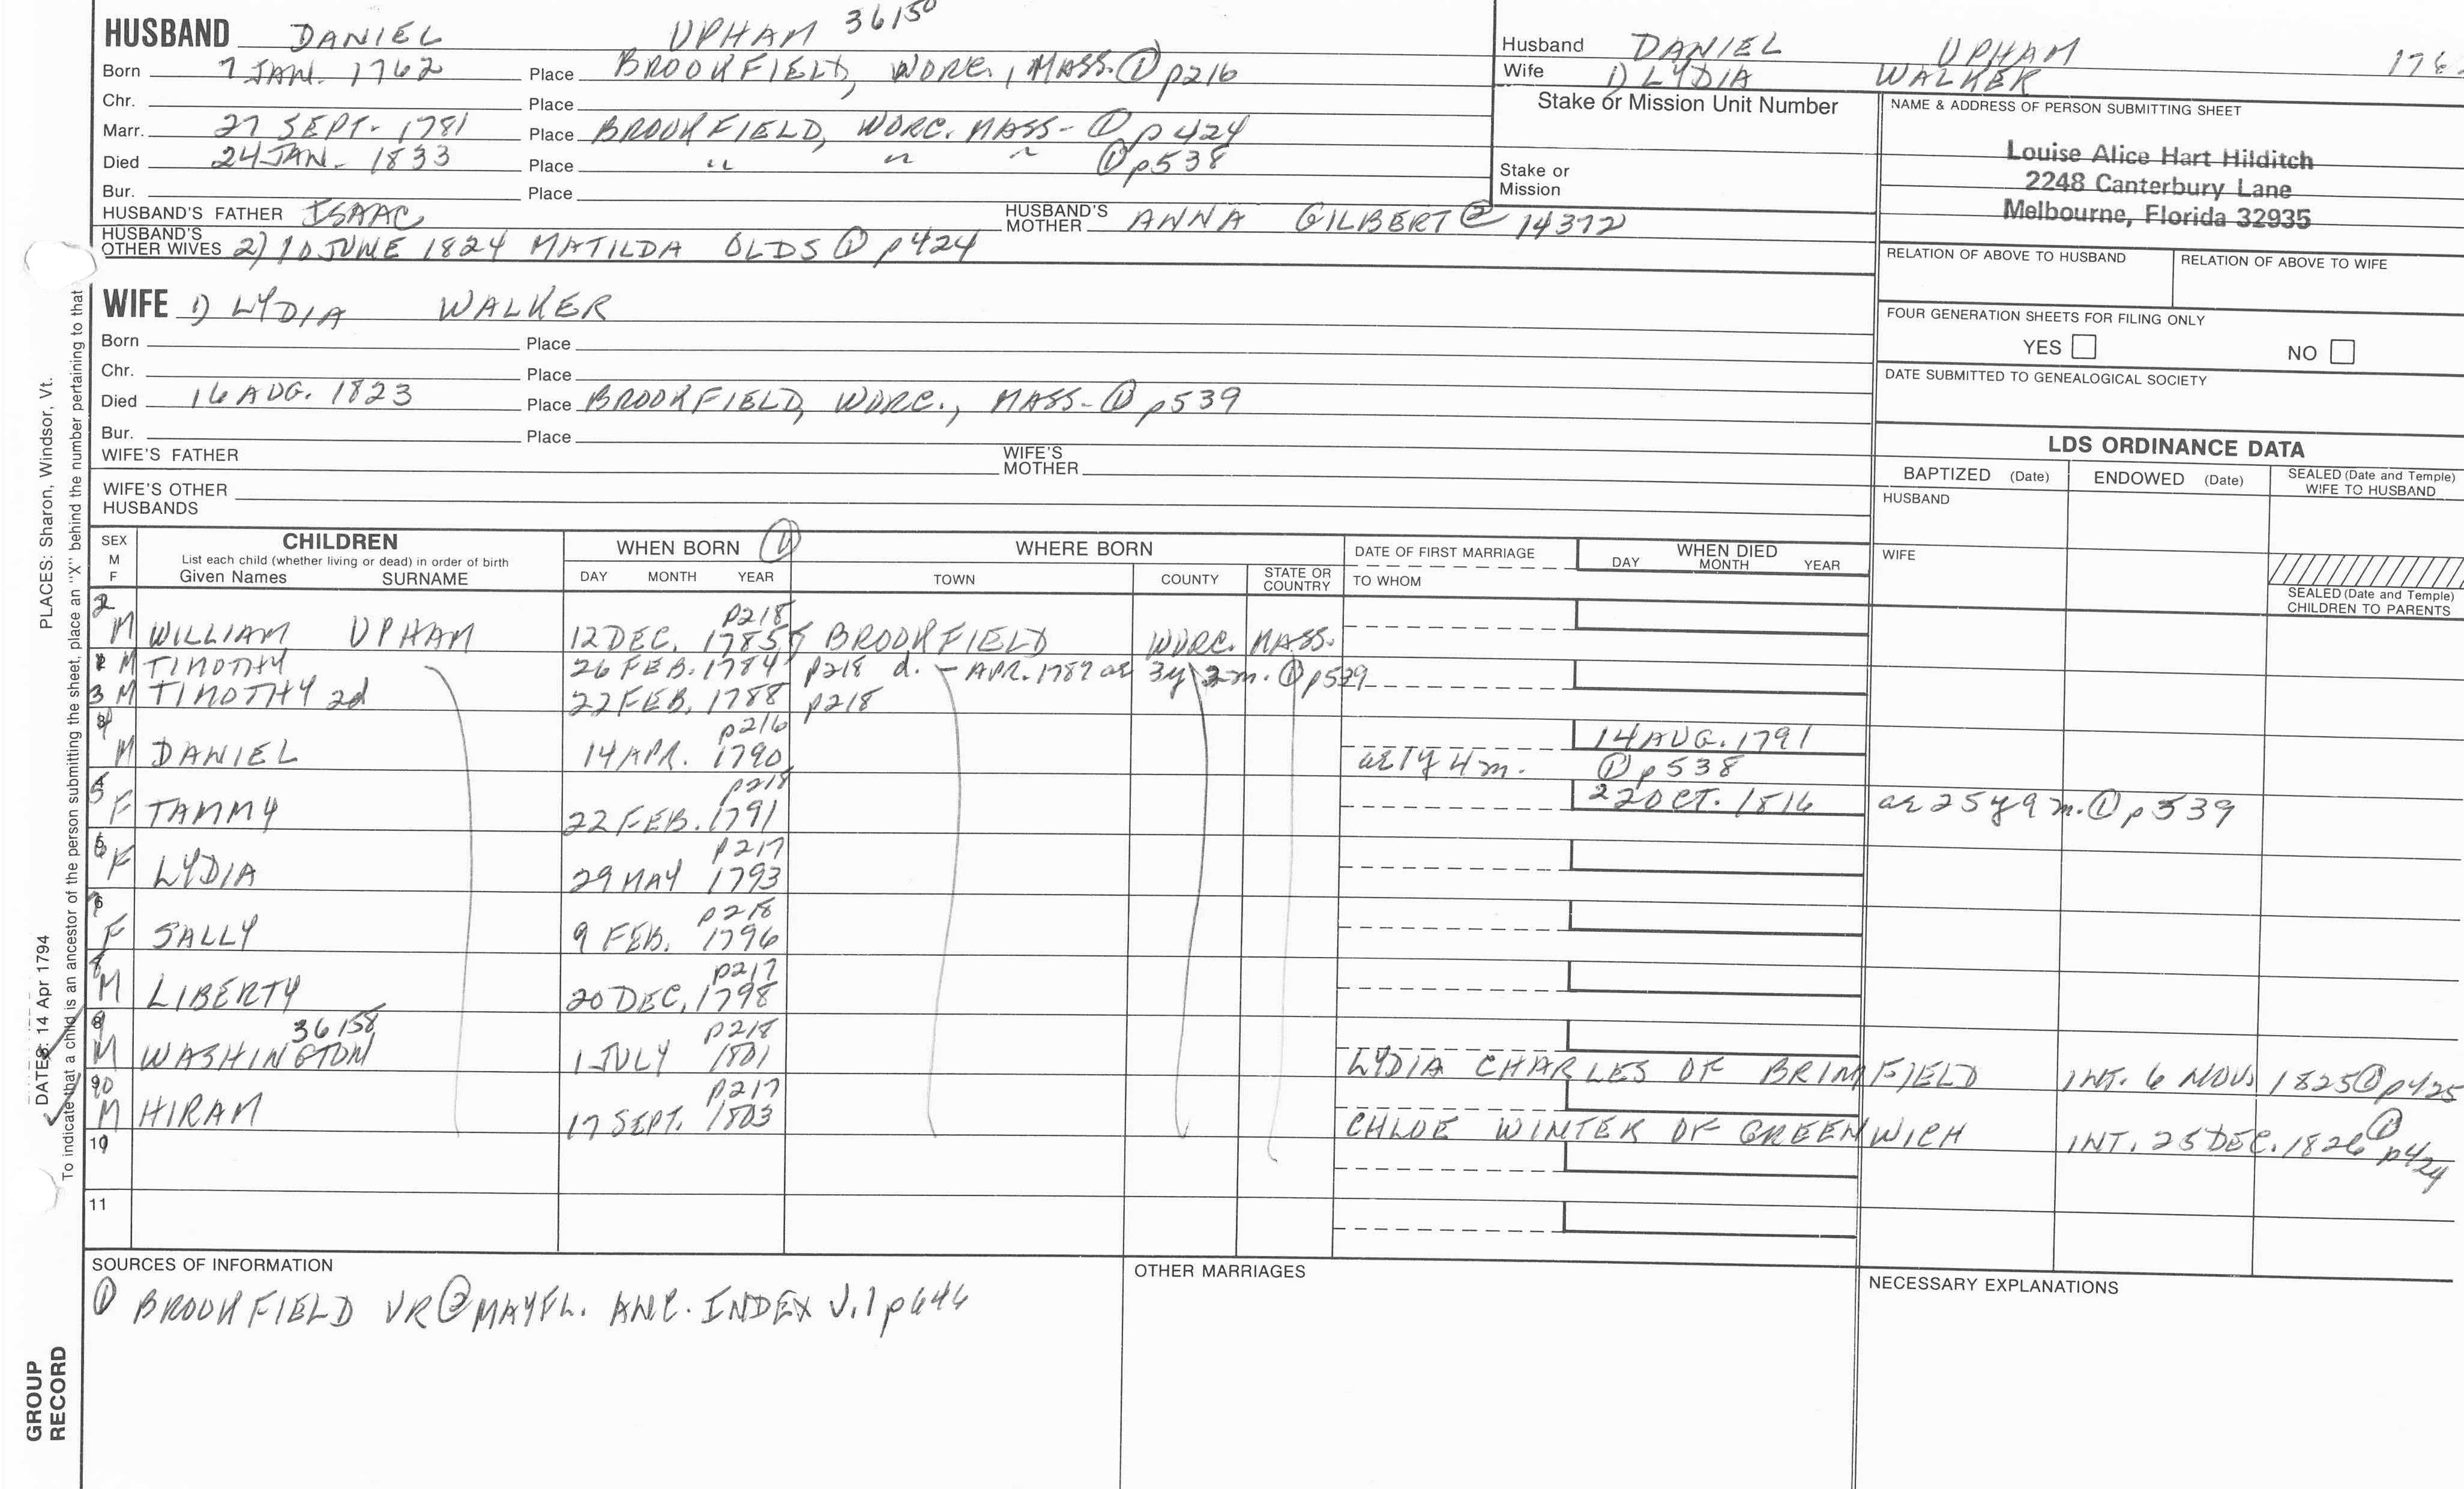 HUSBAND DANIEL UPHAM 36150
Born 7 JAN. 1762 Place BROOKFIELD, WORC., MASS. ① p216
Chr. Place
Marr. 27 SEPT. 1781 Place BROOKFIELD, WORC. MASS- ① p424
Died 24 JAN. 1833 Place " " " ① p538
Bur. Place
HUSBAND'S FATHER ISAAC HUSBAND'S MOTHER ANNA GILBERT ② 14372
HUSBAND'S OTHER WIVES 2) 10 JUNE 1824 MATILDA OLDS ① p424
WIFE 1) LYDIA WALKER
Born Place
Chr. Place
Died 16 AUG. 1823 Place BROOKFIELD, WORC., MASS- ① p539
Bur. Place
WIFE'S FATHER WIFE'S MOTHER
WIFE'S OTHER HUSBANDS
Husband DANIEL UPHAM
Wife 1) LYDIA WALKER
Stake or Mission Unit Number
Stake or Mission
NAME & ADDRESS OF PERSON SUBMITTING SHEET
Louise Alice Hart Hilditch
2248 Canterbury Lane
Melbourne, Florida 32935
RELATION OF ABOVE TO HUSBAND RELATION OF ABOVE TO WIFE
FOUR GENERATION SHEETS FOR FILING ONLY
YES NO
DATE SUBMITTED TO GENEALOGICAL SOCIETY
LDS ORDINANCE DATA
BAPTIZED (Date) ENDOWED (Date) SEALED (Date and Temple) WIFE TO HUSBAND
HUSBAND
WIFE
SEALED (Date and Temple) CHILDREN TO PARENTS
SEX M F
CHILDREN
List each child (whether living or dead) in order of birth
Given Names SURNAME
WHEN BORN ①
DAY MONTH YEAR
WHERE BORN
TOWN COUNTY STATE OR COUNTRY
DATE OF FIRST MARRIAGE
TO WHOM
WHEN DIED
DAY MONTH YEAR
2 M WILLIAM UPHAM 12 DEC. 1785 p218 BROOKFIELD WORC. MASS.
1 M TIMOTHY 26 FEB. 1784 p218 d. - APR. 1787 ae 3y 2m. ① p539
3 M TIMOTHY 2d 22 FEB. 1788 p218
4 M DANIEL 14 APR. 1790 p216 14 AUG. 1791
ae 1y 4m. ① p538
5 F TAMMY 22 FEB. 1791 p218 22 OCT. 1816 ae 25y 9m. ① p539
6 F LYDIA 29 MAY 1793 p217
7 F SALLY 9 FEB. 1796 p218
8 M LIBERTY 20 DEC. 1798 p217
9 M WASHINGTON 36158 1 JULY 1801 p218 LYDIA CHARLES OF BRIMFIELD INT. 6 NOV. 1825 ① p425
10 M HIRAM 17 SEPT. 1803 p217 CHLOE WINTER OF GREENWICH INT. 25 DEC. 1826 ① p424
10
11
SOURCES OF INFORMATION
① BROOKFIELD VR ② MAYFL. ANC. INDEX V.1 p646
OTHER MARRIAGES
NECESSARY EXPLANATIONS
PLACES: Sharon, Windsor, Vt.
DATES: 14 Apr 1794
To indicate that a child is an ancestor of the person submitting the sheet, place an "X" behind the number pertaining to that
GROUP RECORD